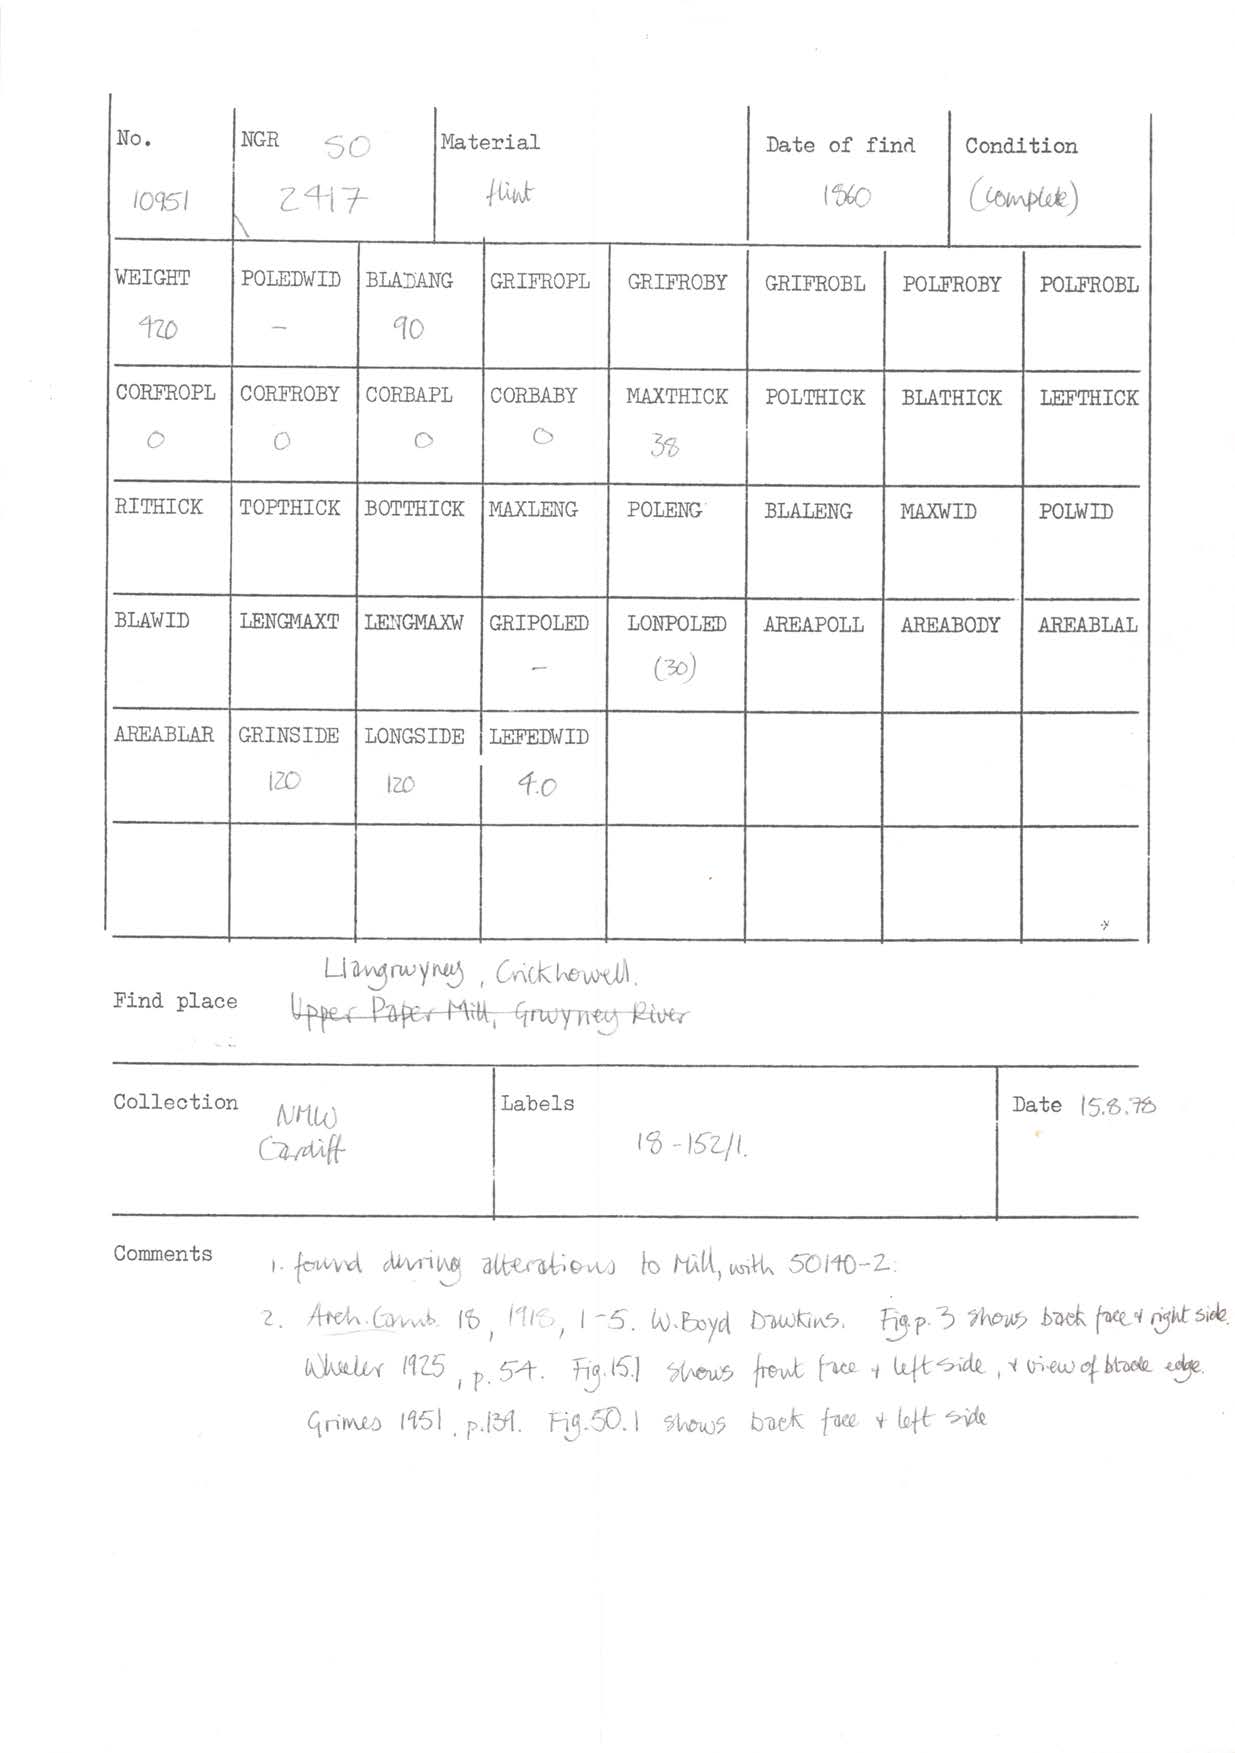 No. NGR SO Material Date of find Condition
10951 2417 flint 1860 (complete)
WEIGHT POLEDWID BLADANG GRIFROPL GRIFROBY GRIFROBL POLFROBY POLFROBL
420 - 90
CORFROPL CORFROBY CORBAPL CORBABY MAXTHICK POLTHICK BLATHICK LEFTHICK
0 0 0 0 38
RITHICK TOPTHICK BOTTHICK MAXLENG POLENG BLALENG MAXWID POLWID
BLAWID LENGMAXT LENGMAXW GRIPOLED LONPOLED AREAPOLL AREABODY AREABLAL
- (30)
AREABLAR GRINSIDE LONGSIDE LEFEDWID
120 120 4.0
Llangrwyney, Crickhowell.
Find place Upper Paper Mill, Grwyney River
Collection NMW Labels Date 15.8.78
Cardiff 18-152/1.
Comments 1. found during alterations to Mill, with 50140-2.
2. Arch. Camb. 18, 1918, 1-5. W. Boyd Dawkins. Fig p. 3 shows back face & right side.
Wheeler 1925, p. 54. Fig. 15.1 shows front face & left side, & view of blade edge.
Grimes 1951, p.139. Fig. 50.1 shows back face & left side